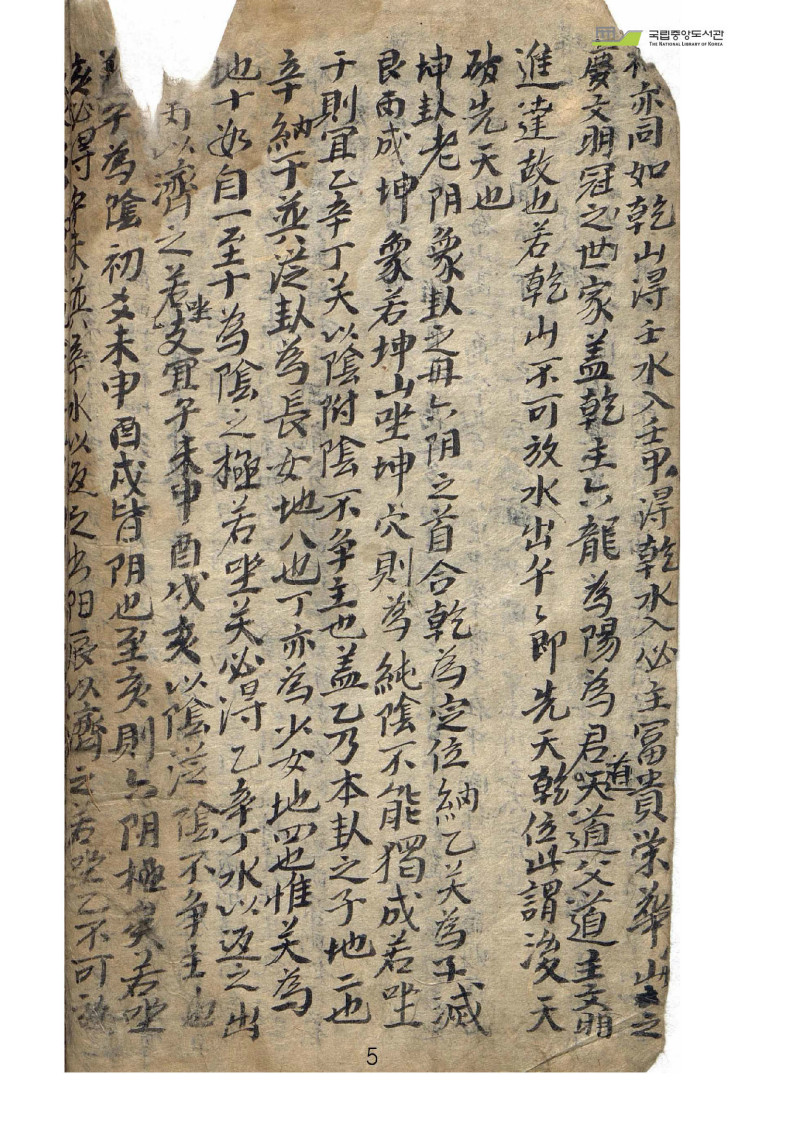 국립중앙도서관
THE NATIONAL LIBRARY OF KOREA
亦同如乾山得壬水入壬甲得乾水入必主冨貴荣華山之
慶文明冠之世家盖乾主六龍為陽為君天道父道主文明
道
進達故也若乾山不可放水出午午即先天乾位此謂後天
破先天也
坤卦老阴象卦之毋六阴之首合乾為定位納乙癸為子減
艮而成坤象若坤山坐坤穴則為純陰不能獨成若坐
于則宜乙辛丁关以陰附陰不争主也盖乙乃本卦之子地二也
辛納于巽従卦為長女地八也丁亦為少女地四也惟关為
地十数自一至十為陰之極若坐关必得乙辛丁水以返之出
而以濟之若坐支宜子未申酉戌亥以陰従陰不争主也
子為陰初爻未申酉戌皆阴也至亥則六阴極矣若坐
亥必得未巽辛水以返之出阳辰以濟之若坐乙不可
5